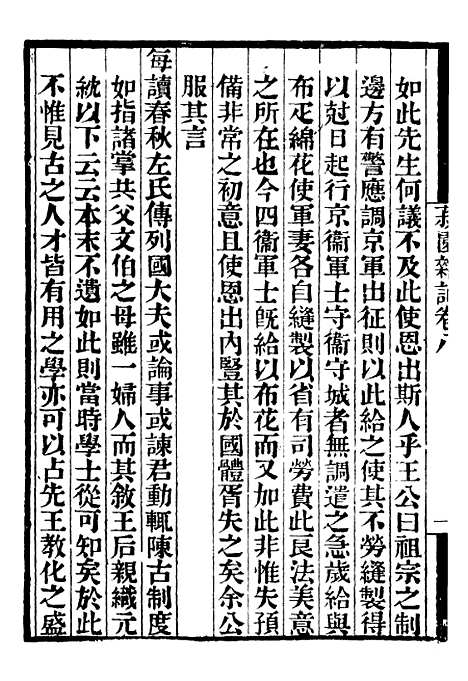 菽園雜記卷八
一
如此先生何議不及此使恩出斯人乎王公曰祖宗之制
邊方有警應調京軍出征則以此給之使其不勞縫製得
以尅日起行京衞軍士守衞守城者無調遣之急歲給與
布疋綿花使軍妻各自縫製以省有司勞費此良法美意
之所在也今四衞軍士旣給以布花而又如此非惟失預
備非常之初意且使恩出內豎其於國體胥失之矣余公
服其言
每讀春秋左氏傳列國大夫或論事或諫君動輒陳古制度
如指諸掌共父文伯之母雖一婦人而其敘王后親織元
紞以下云云本末不遺如此則當時學士從可知矣於此
不惟見古之人才皆有用之學亦可以占先王教化之盛